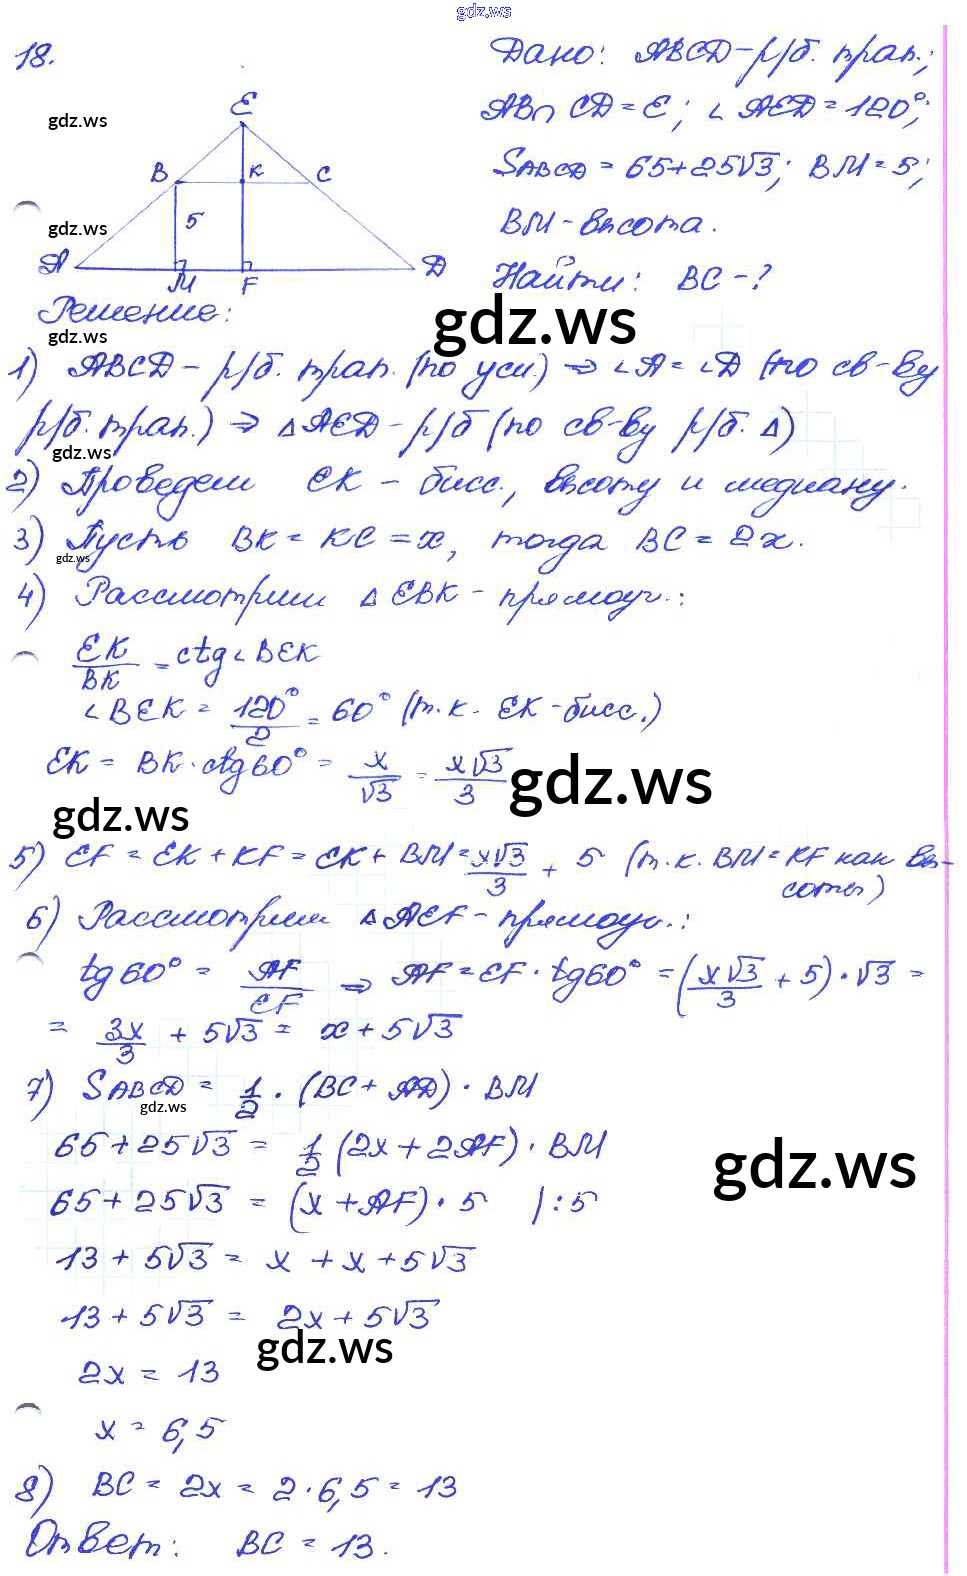 gdz.ws
18.
Дано: ABCD – р/б. трап.;
gdz.ws
E
AB∩ CD = E; ∠ AED = 120°;
B K C
S ABCD = 65+25√3; BM = 5;
5
gdz.ws
BM – высота.
A M F D
Найти: BC – ?
Решение:
gdz.ws
gdz.ws
1) ABCD – р/б. трап. (по усл.) ⇒ ∠A = ∠D (по св-ву
р/б. трап.) ⇒ △ AED – р/б (по св-ву р/б. △)
gdz.ws
2) Проведем EK – бисс., высоту и медиану.
3) Пусть BK = KC = x, тогда BC = 2x.
gdz.ws
4) Рассмотрим △ EBK – прямоуг.:
EK/BK = ctg∠BEK
∠BEK = 120°/2 = 60° (т.к. EK – бисс.)
EK = BK · ctg60° = x/√3 = x√3/3
gdz.ws
gdz.ws
5) EF = EK + KF = EK + BM = x√3/3 + 5 (т.к. BM = KF как вы-
соты)
6) Рассмотрим △ AEF – прямоуг.:
tg60° = AF/EF ⇒ AF = EF · tg60° = (x√3/3 + 5) · √3 =
= 3x/3 + 5√3 = x + 5√3
7) S ABCD = 1/2 · (BC + AD) · BM
gdz.ws
65+25√3 = 1/2 (2x + 2AF) · BM
gdz.ws
65+25√3 = (x + AF) · 5 | : 5
13 + 5√3 = x + x + 5√3
13 + 5√3 = 2x + 5√3
gdz.ws
2x = 13
x = 6,5
8) BC = 2x = 2 · 6,5 = 13
Ответ: BC = 13.